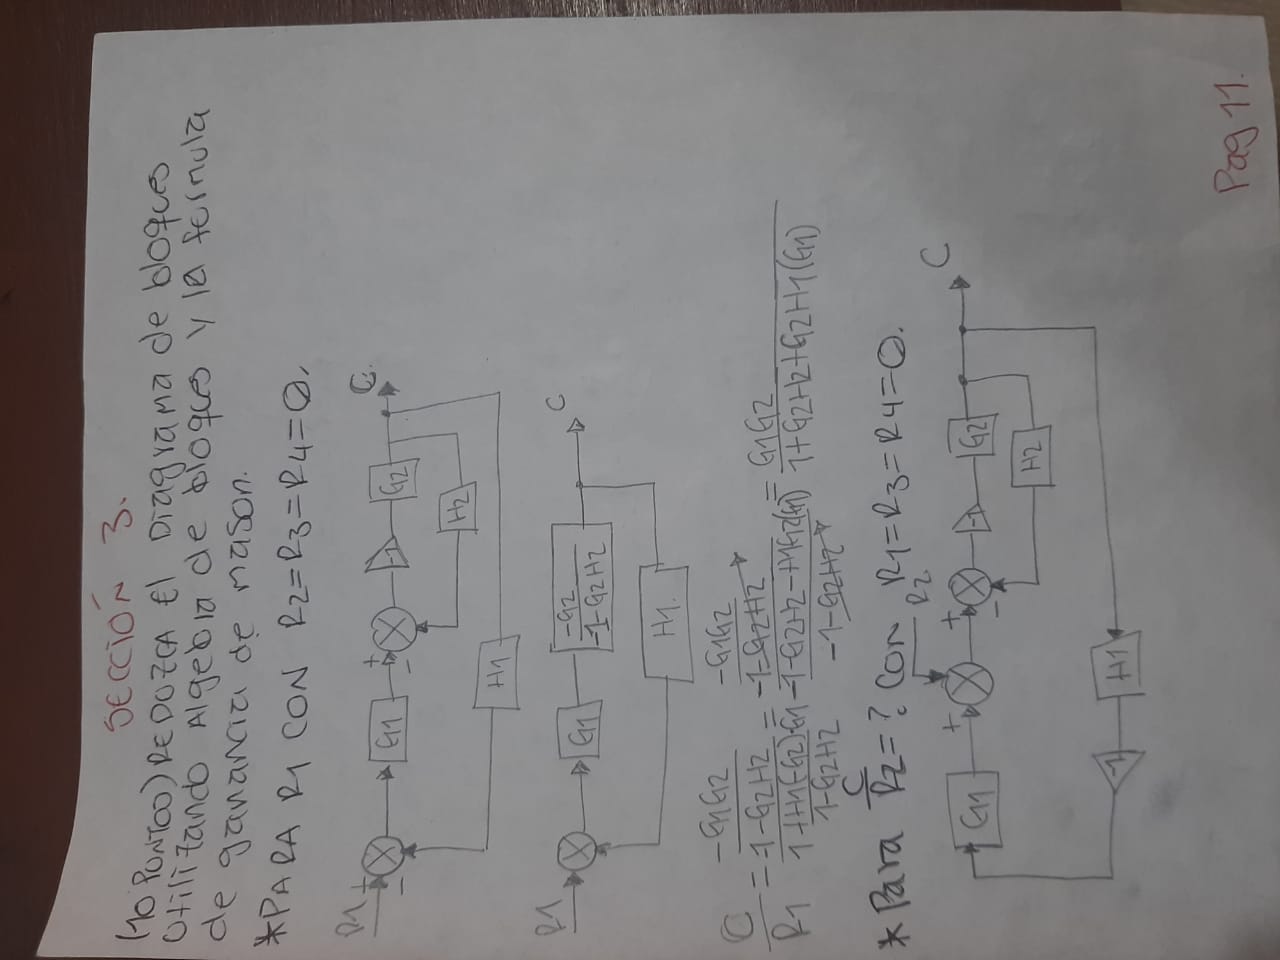 SECCIÓN 3.
(10 PUNTOS) REDUZCA El Diagrama de bloques
Utilizando Algebra de bloques y la formula
de ganancia de mason.
*PARA R1 CON R2=R3=R4=0.
R1 + − G1 + − -1 G2 C
H2
H1
R1 G1 -G2 C
-1-G2H2
H1.
-G1G2 -G1G2
C/R1 = 1-G2H2 = -1-G2H2 = G1G2
1+H1(-G2)·G1 -1-G2H2-H1G2(G1) 1+G2H2+G2H1(G1)
1-G2H2 -1-G2H2
* Para C/R2=? CON R1=R3=R4=0.
R2
G1 + + − -1 G2 C
H2
-1 H1
Pag 11.